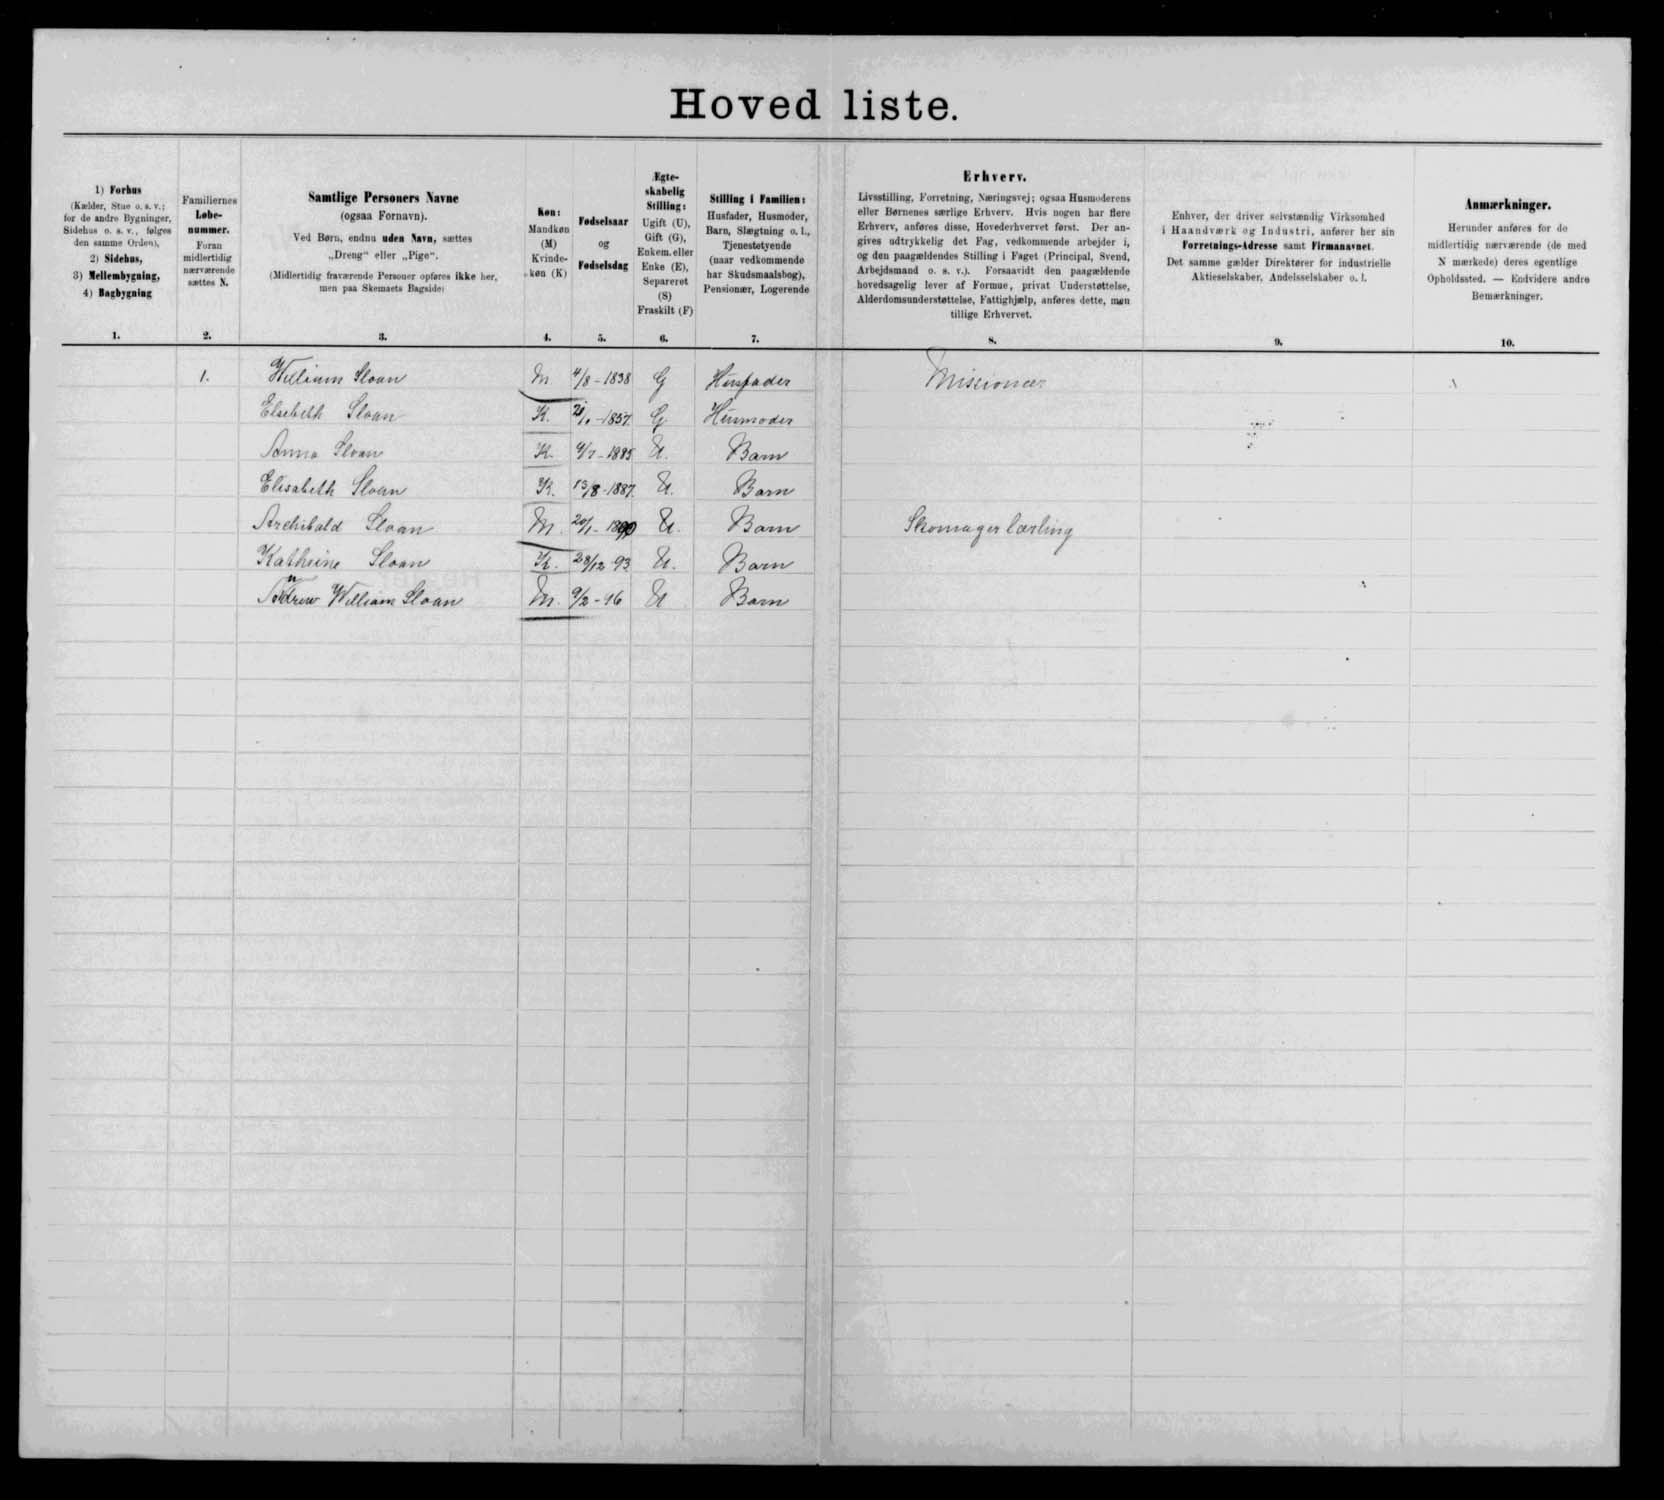 Hoved liste.
1) Forhus
(Kælder, Stue o. s. v.;
for de andre Bygninger,
Sidehus o. s. v., følges
den samme Orden),
2) Sidehus,
3) Mellembygning,
4) Bagbygning
1.
Familiernes
Løbe-
nummer.
Foran
midlertidig
nærværende
sættes N.
2.
Samtlige Personers Navne
(ogsaa Fornavn).
Ved Børn, endnu uden Navn, sættes
„Dreng“ eller „Pige“.
(Midlertidig fraværende Personer opføres ikke her,
men paa Skemaets Bagside)
3.
Køn:
Mandkøn
(M)
Kvinde-
køn (K)
4.
Fødselsaar
og
Fødselsdag
5.
Ægte-
skabelig
Stilling:
Ugift (U),
Gift (G),
Enkem. eller
Enke (E),
Separeret
(S)
Fraskilt (F)
6.
Stilling i Familien:
Husfader, Husmoder,
Barn, Slægtning o. l.,
Tjenestetyende
(naar vedkommende
har Skudsmaalsbog),
Pensionær, Logerende
7.
Erhverv.
Livsstilling, Forretning, Næringsvej; ogsaa Husmoderens
eller Børnenes særlige Erhverv. Hvis nogen har flere
Erhverv, anføres disse, Hovederhvervet først. Der an-
gives udtrykkelig det Fag, vedkommende arbejder i,
og den paagældendes Stilling i Faget (Principal, Svend,
Arbejdsmand o. s. v.). Forsaavidt den paagældende
hovedsagelig lever af Formue, privat Understøttelse,
Alderdomsunderstøttelse, Fattighjælp, anføres dette, men
tillige Erhvervet.
8.
Enhver, der driver selvstændig Virksomhed
i Haandværk og Industri, anfører her sin
Forretnings-Adresse samt Firmanavnet.
Det samme gælder Direktører for industrielle
Aktieselskaber, Andelsselskaber o. l.
9.
Anmærkninger.
Herunder anføres for de
midlertidig nærværende (de med
N mærkede) deres egentlige
Opholdssted. — Endvidere andre
Bemærkninger.
10.
1. William Sloan M 4/8-1838 G Husfader Missionær
Elsebeth Sloan K. G Husmoder
Anna Sloan K. U. Barn
Elisabeth Sloan K. 13/8-1887. U. Barn
Archibald Sloan M. 20/1-1890 U. Barn Skomagerlærling
Kathrine Sloan K. 28/12 93 U. Barn
Andrew William Sloan M. 9/2-96 U Barn